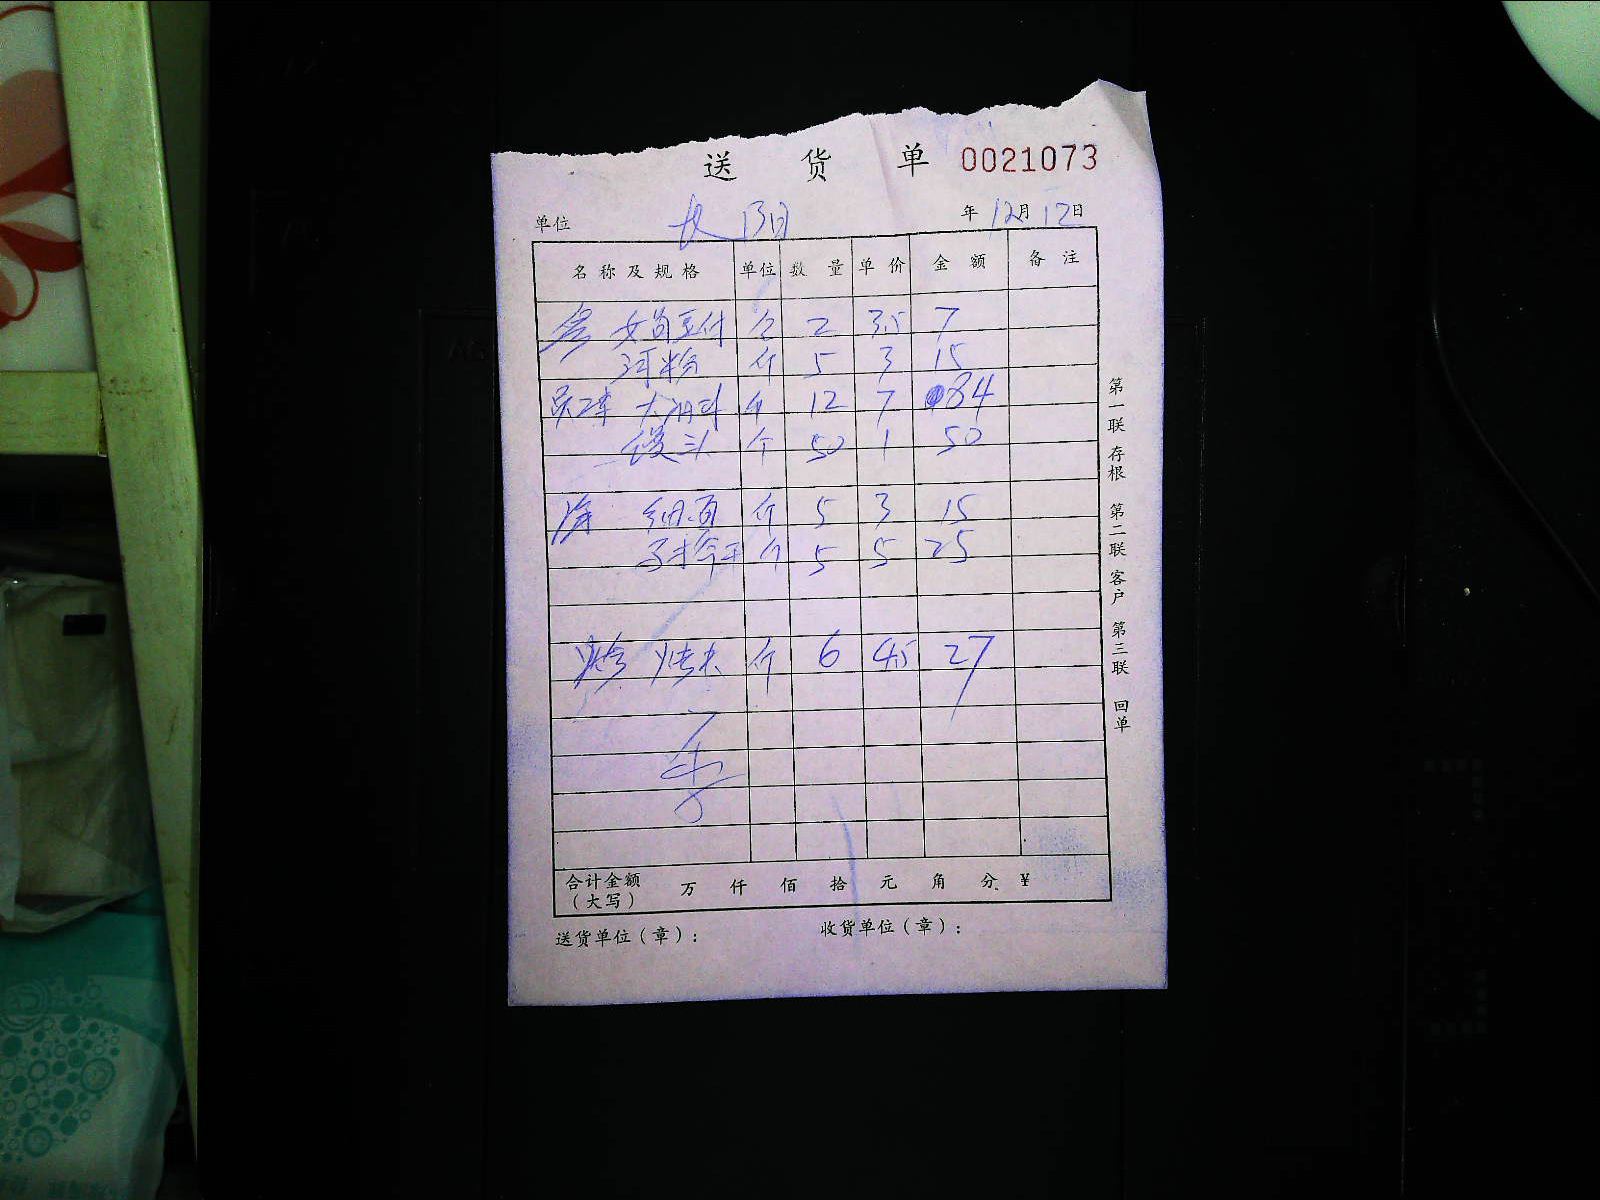 送货单 0021073
单位 年12月12日
名称及规格 单位 数量 单价 金额 备注
2 3.5 7
河粉 斤 5 3 15
斤 12 7 84
馒头 个 50 1 50
细面 斤 5 3 15
斤 5 5 25
斤 6 4.5 27
合计金额（大写） 万 仟 佰 拾 元 角 分 ¥
送货单位（章）： 收货单位（章）：
第一联 存根 第二联 客户 第三联 回单